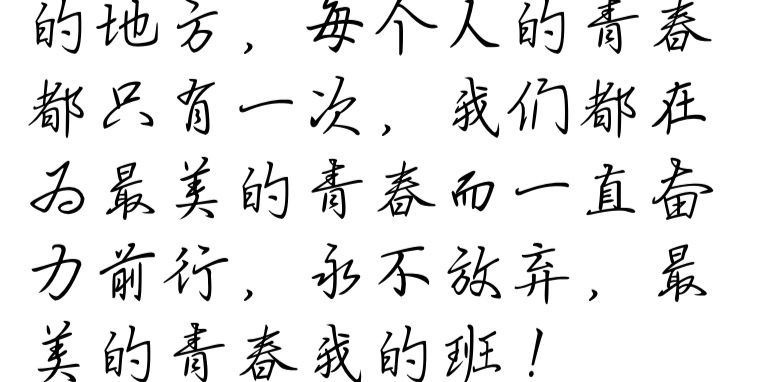 的地方，每个人的青春
都只有一次，我们都在
为最美的青春而一直奋
力前行，永不放弃，最
美的青春我的班！